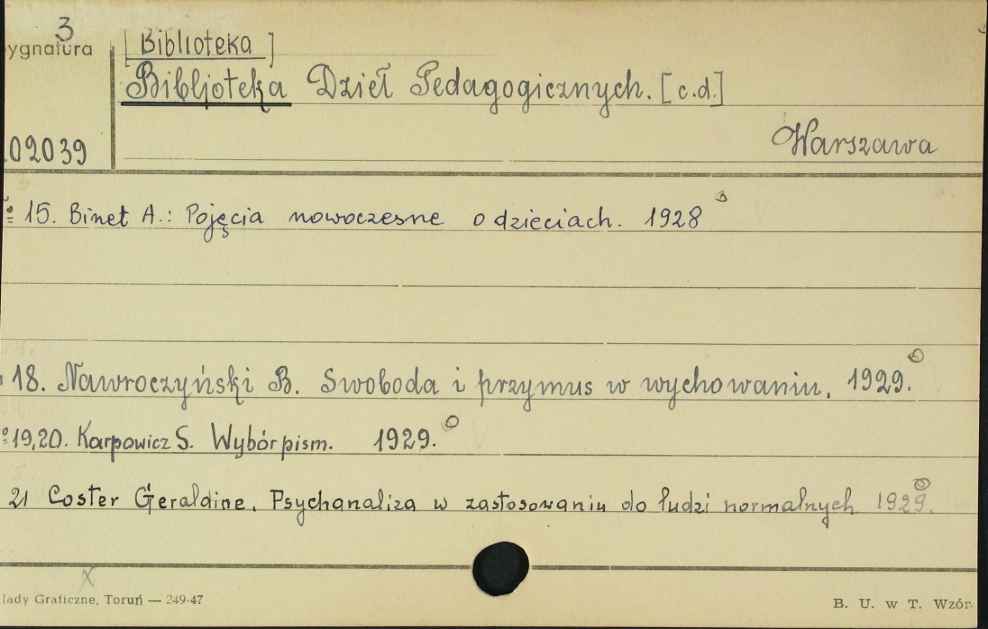 3
ygnatura
[Biblioteka]
Bibljoteka Dzieł Pedagogicznych. [c.d.]
02039
Warszawa
15. Binet A.: Pojęcia nowoczesne o dzieciach. 1928
18. Nawroczyński B. Swoboda i przymus w wychowaniu. 1929.
19,20. Karpowicz S. Wybór pism. 1929.
21 Coster Geraldine. Psychanaliza w zastosowaniu do ludzi normalnych 1929.
x
lady Graficzne, Toruń — 249-47
B. U. w T. Wzór